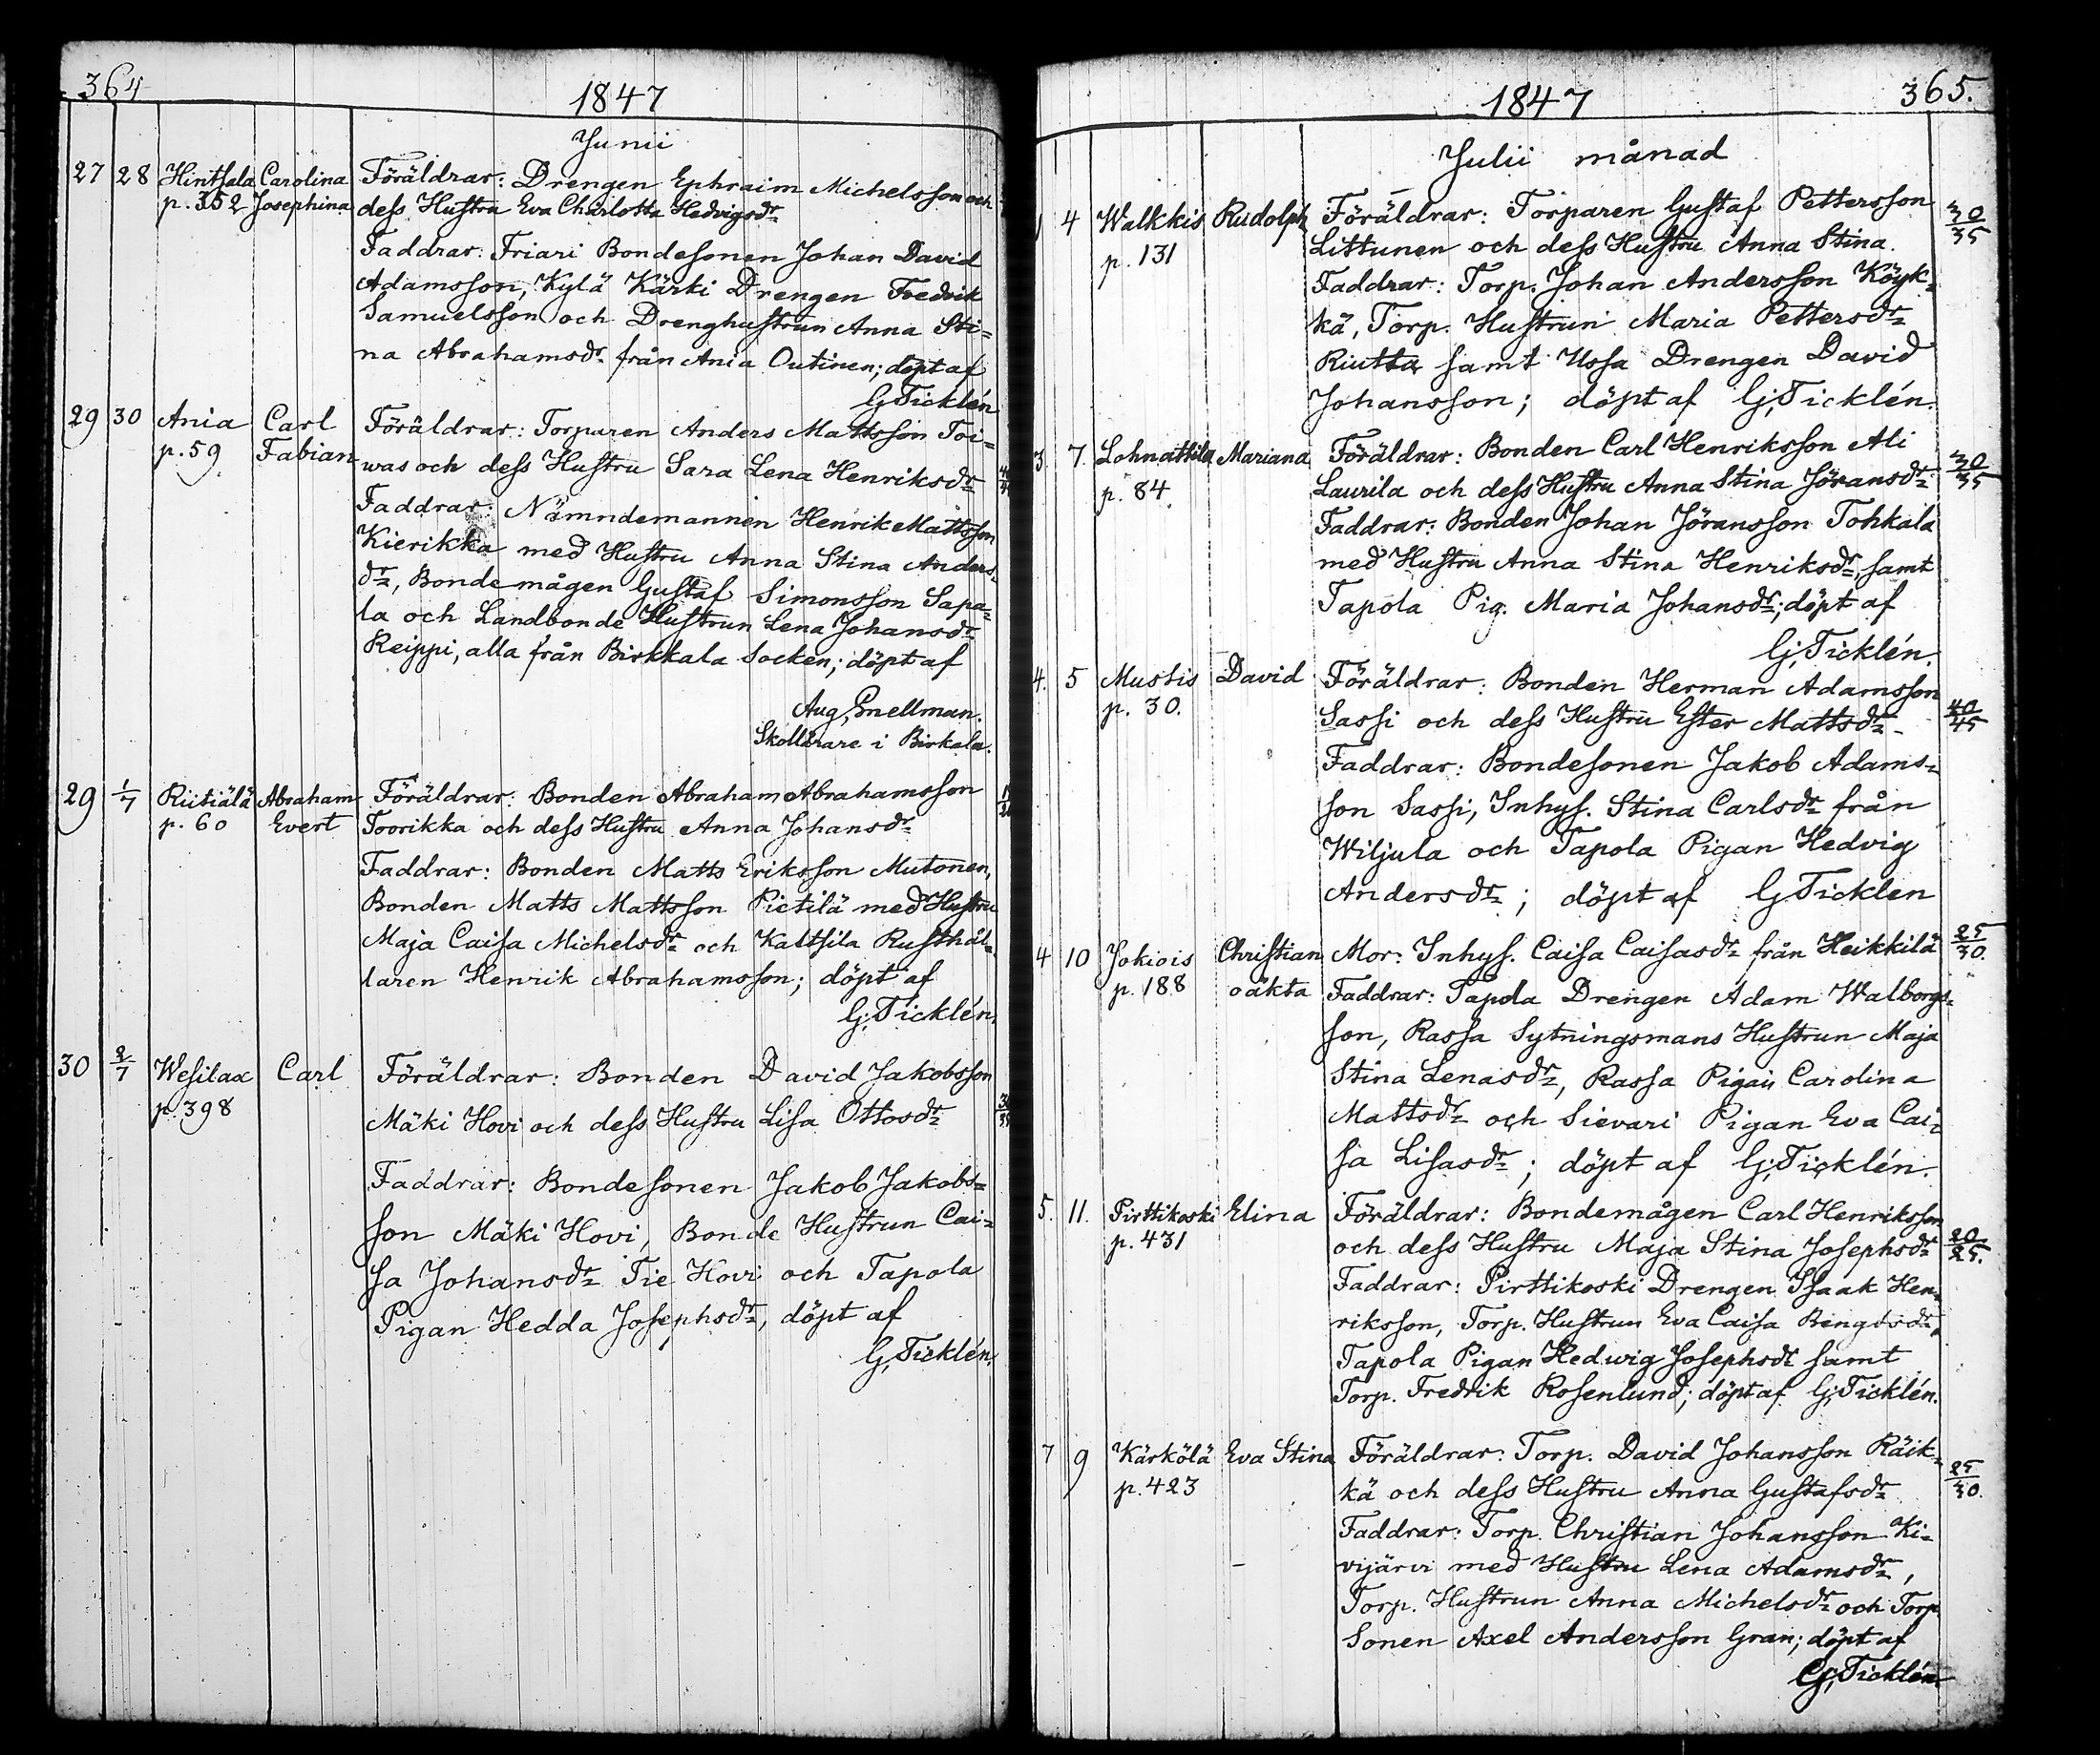 364
1847
Junii
27 28 Hintsala Carolina Föräldrar: Drengen Ephraim Michelsson och
p. 352 Josephina dess Hustru Eva Charlotta Hedvigsdr
Faddrar: Friari Bondesonen Johan David
Adamsson, Kylä Kärki Drengen Fredrik
Samuelsson och Drenghustrun Anna Sti=
na Abrahamsdr från Ania Outinen; döpt af
G. Ticklén
29 30 Ania Carl Föräldrar: Torparen Anders Mattsson Toi=
p. 59. Fabian was och dess Hustru Sara Lena Henriksdr
Faddrar: Nämndemannen Henrik Mattsson
Kierikka med Hustru Anna Stina Anders=
dr, Bonde mågen Gustaf Simonsson Sapa=
la och Landbonde Hustrun Lena Johansdr
Reippi, alla från Birkkala Socken; döpt af
Aug. Snellman.
Skollärare i Birkala.
29 1/7 Riitiälä Abraham Föräldrar: Bonden Abraham Abrahamsson
p. 60 Evert Toorikka och dess Hustru Anna Johansdr
Faddrar: Bonden Matts Eriksson Mutonen,
Bonden Matts Mattsson Pietilä med Hustru
Maja Caisa Michelsdr och Kaltsila Rusthål=
laren Henrik Abrahamsson; döpt af
G. Ticklén.
30 2/7 Wesilax Carl Föräldrar: Bonden David Jakobsson
p. 398 Mäki Hovi och dess Hustru Lisa Ottosdr
Faddrar: Bondesonen Jakob Jakobs=
son Mäki Hovi, Bonde Hustrun Cai=
sa Johansdr Tie Hovi och Tapola
Pigan Hedda Josephsdr, döpt af
G. Ticklén.
365.
1847
Julii månad
1 4 Walkkis Rudolph Föräldrar: Torparen Gustaf Pettersson 30/35
p. 131 Littunen och dess Hustru Anna Stina.
Faddrar: Torp. Johan Andersson Köyk=
kä, Torp. Hustrun Maria Pettersdr
Riutta samt Ussa Drengen David
Johansson; döpt af G. Ticklén.
3. 7. Lohnattila Mariana Föräldrar: Bonden Carl Henriksson Ali 30/35
p. 84. Laurila och dess Hustru Anna Stina Jöransdr
Faddrar: Bonden Johan Jöransson Tohkala
med Hustru Anna Stina Henriksdr, samt
Tapola Pig. Maria Johansdr; döpt af
G. Ticklén.
4. 5 Mustis David Föräldrar: Bonden Herman Adamsson
p. 30. Sassi och dess Hustru Ester Mattsdr 40/45
Faddrar: Bondesonen Jakob Adams=
son Sassi, Inhys. Stina Carlsdr från
Wiljula och Tapola Pigan Hedvig
Andersdr; döpt af G. Ticklen
4 10 Jokiois Christian Mor: Inhys. Caisa Caisasdr från Heikkilä 25/30.
p. 188 oäkta Faddrar: Tapola Drengen Adam Walborgs=
son, Rassa Sytningsmans Hustrun Maja
Stina Lenasdr, Rassa Pigan Carolina
Mattsdr och Sievari Pigan Eva Cai=
sa Lisasdr; döpt af G. Ticklén.
5. 11. Pirttikoski Elina Föräldrar: Bondemågen Carl Henriksson
p. 431 och dess Hustru Maja Stina Josephsdr 20/25.
Faddrar: Pirttikoski Drengen Isaak Hen=
riksson, Torp. Hustrun Eva Caisa Bengtsdr,
Tapola Pigan Hedwig Josephsdr samt
Torp. Fredrik Rosenlund; döpt af G. Ticklén.
7 9 Kärkölä Eva Stina Föräldrar: Torp. David Johansson Räik=
p. 423 kä och dess Hustru Anna Gustafsdr 25/30.
Faddrar: Torp. Christian Johansson Ki=
vijärvi med Hustru Lena Adamsdr,
Torp. Hustrun Anna Michelsdr och Torp
Sonen Axel Andersson Gran; döpt af
G. Ticklén.